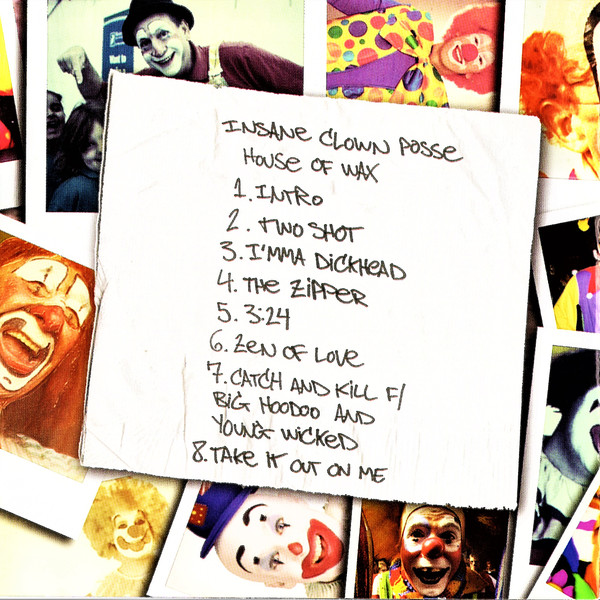 INSANE CLOWN POSSE
HOUSE OF WAX
1. INTRO
2. TWO SHOT
3. I'MMA DICKHEAD
4. THE ZIPPER
5. 3:24
6. ZEN OF LOVE
7. CATCH AND KILL F/
BIG HOODOO AND
YOUNG WICKED
8. TAKE IT OUT ON ME